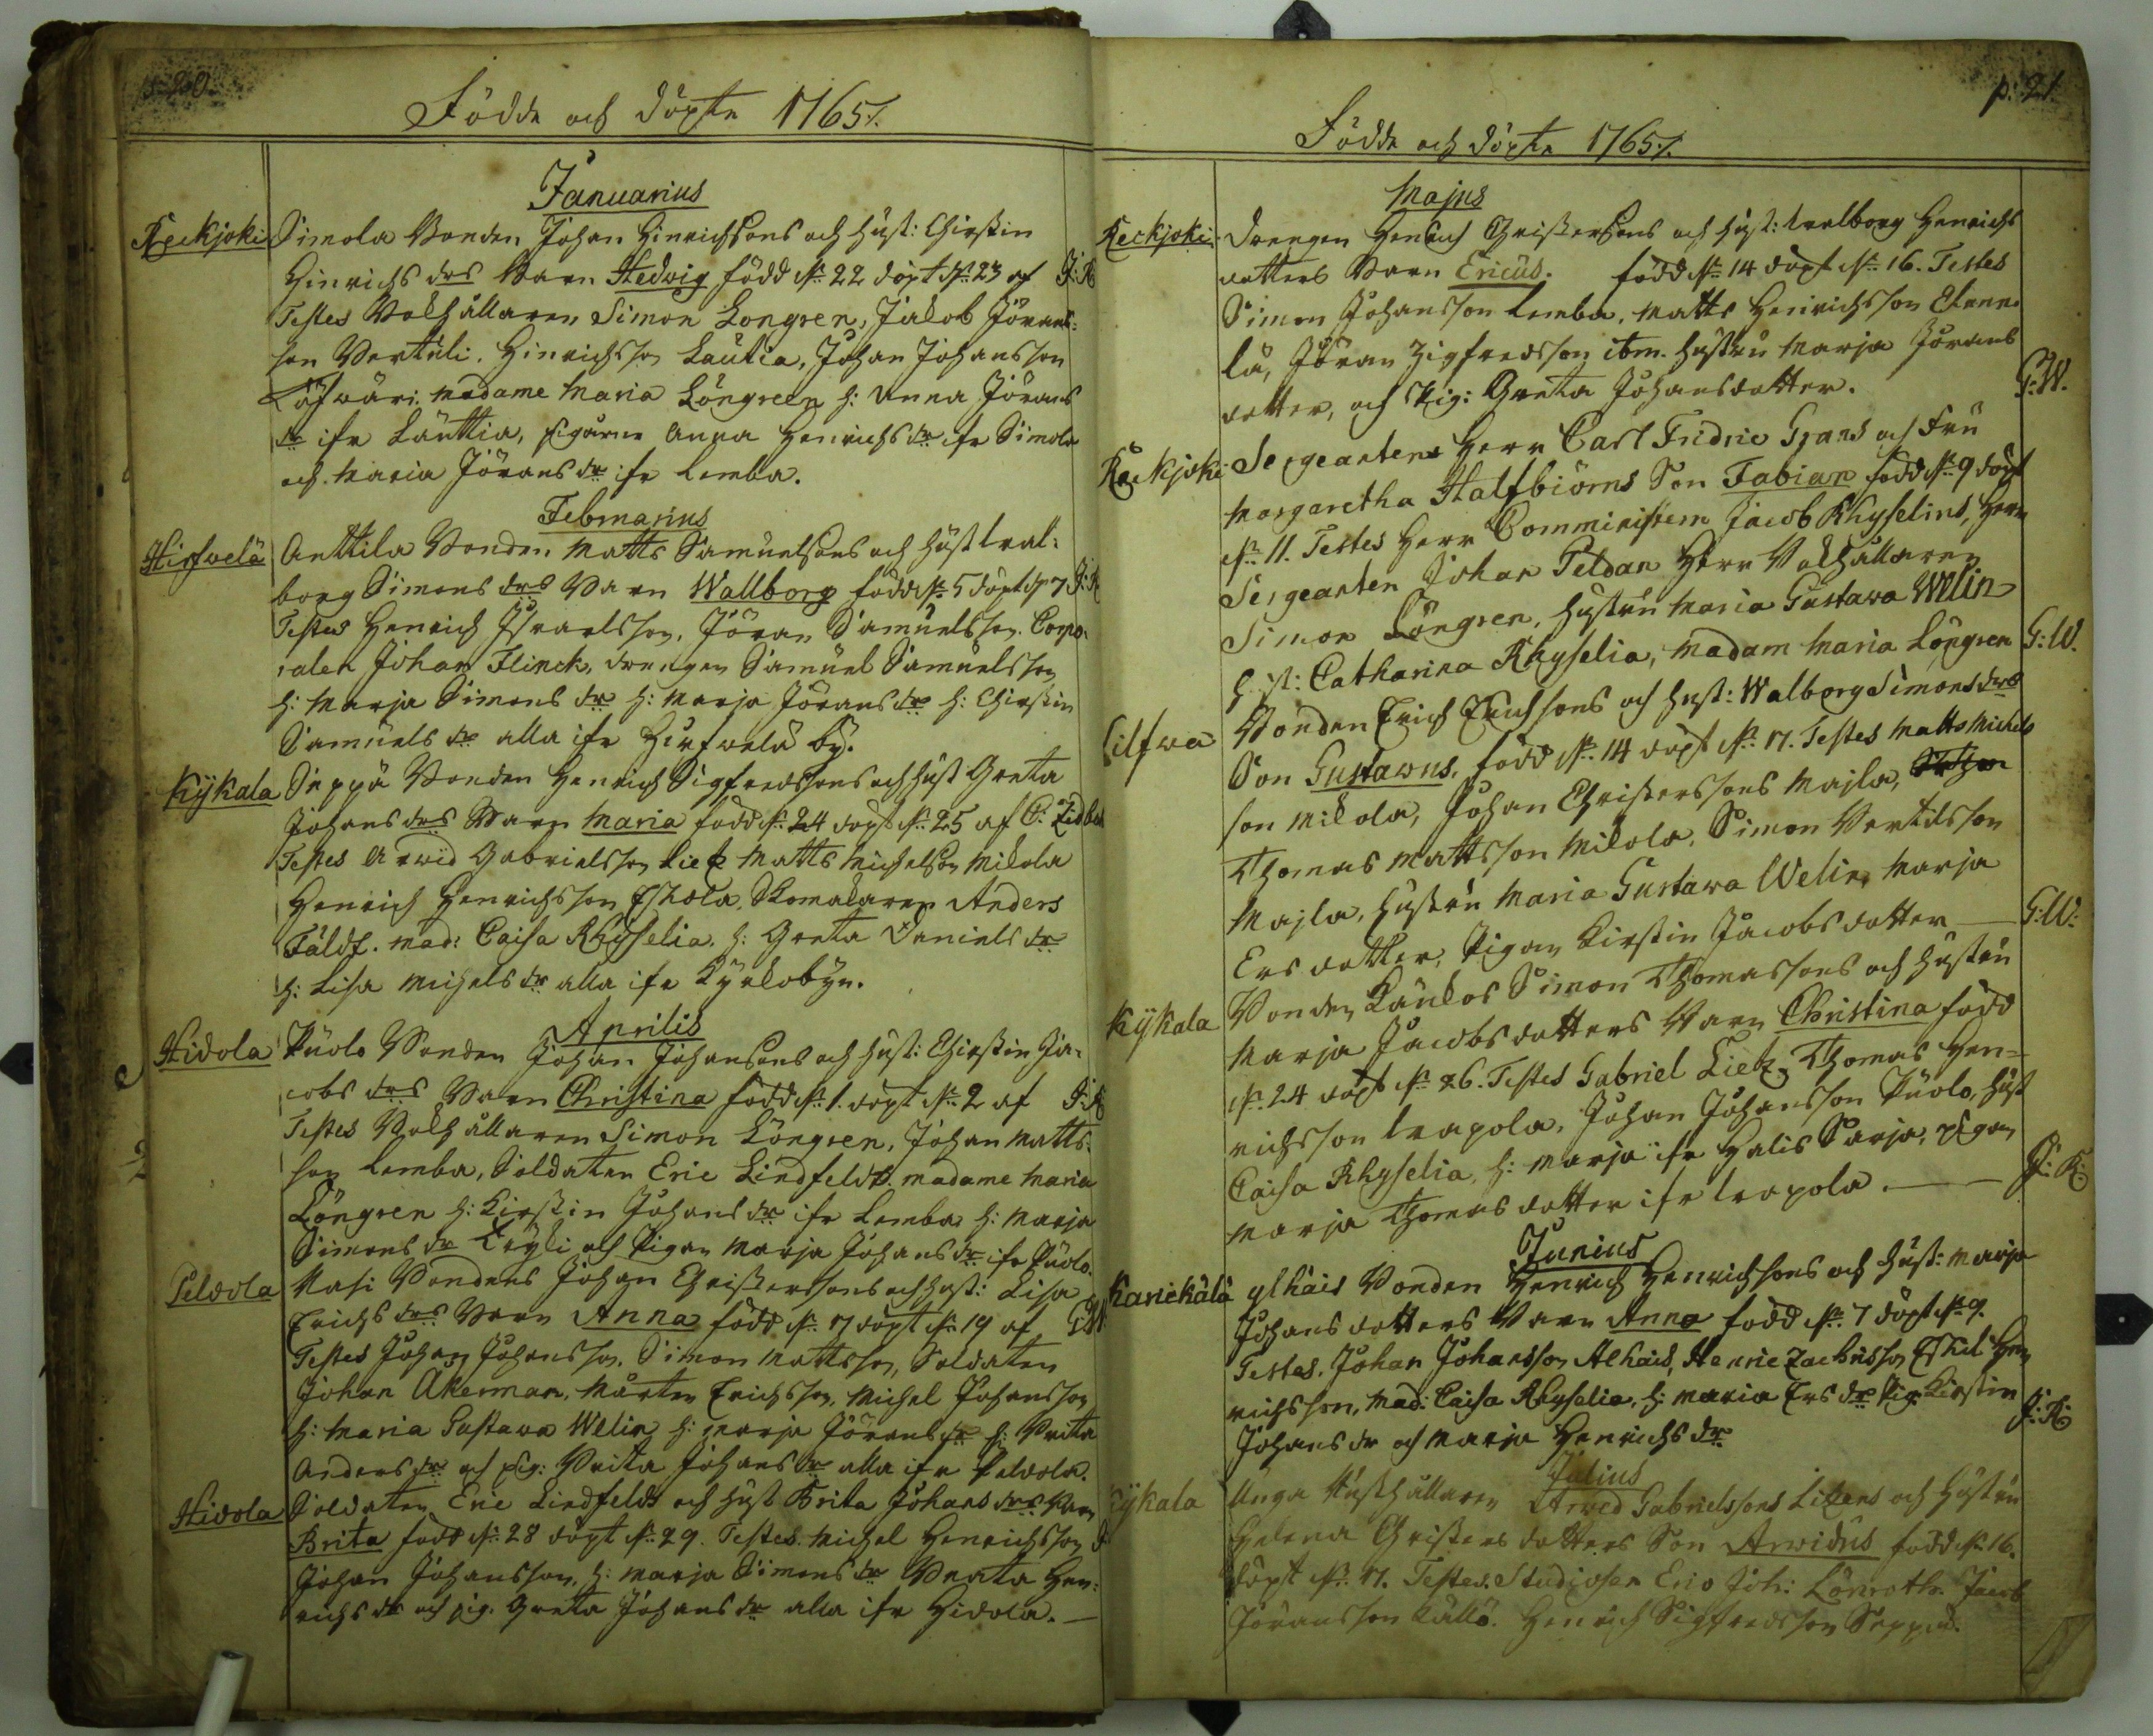 p: 20.
Födde och döpte 1765/.
Januarius
Keckjoki Simola Bonden Johan Hinrichsons och Hust: Chirstin
Hinrichs drs Barn Hedvig född N: 22 döpt N: 23 af J: K
Testes Bokhållaren Simon Longren, Jakob Jörans-
son Bertuli. Hinrichsson Lautia, Johan Johansson
madame Maria Löngreen h: Anna Jörans
dr ifr Lauttia, pigorne Anna Henrichs dr ifr Simola
och Maria Jörans dr ifr Lemba.
Februarius
Hirfvelä Anttila Bonden Matts Samuelsons och Hust Wal-
borg Simons drs Barn Wallborg född N: 5 döpt N: 7 J: K
Testes Henrich Israelsson, Jöran Samuelsson. Corpo-
ralen Johan Flinck, drengen Samuel Samuelsson
h: Marja Simons dr h: Marja Jörans dr h: Chirstin
Samuels dr alla ifr Hirfwelä by.
Kÿkala Seppä Bonden Henrich Sigfredssons och Hust Greta
Johans drs Barn Maria född N: 24 döpt N: 25 af C:
Testes Arwid Gabrielsson Lietz Matts Michelsson Mikola
Henrich Henrichsson Eskola, Skomakaren Anders
Fäldt. mad: Caisa Rhyselia. h: Greta Daniels dr
h: Lisa Michels dr alla ifr Kyrkobyn.
Aprilis
Hidola Puolo Bonden Johan Johansons och Hust: Chirstin Ja-
cobs drs Barn Christina född N: 1. döpt N: 2 af J: K
Testes Bokhållaren Simon Löngren, Johan Matts-
son Lemba, Soldaten Eric Lindfeldt. madame Maria
Löngren h: Kirstin Johans dr ifr Lemba h: Marja
Simons dr och Pigan Marja Johans dr ifr Puolo.
Peldola Masi Bondens Johan Christerssons och Hust: Lisa
Erichs drs Barn Anna född N: 17 döpt N: 19 af G:W:
Testes Johan Johansson, Simon Mattsson, Soldaten
Johan Åkerman, Mårten Erichsson, Michel Johansson
h: Maria Gustava Welin h: Marja Jörans dr h: Brita
Anders dr och pig: Brita Johans dr alla ifr Peldola.
Hidola Soldaten Eric Lindfeldt och Hust Brita Johans drs Barn
Brita född N: 28 döpt N: 29. Testes. Michel Henrichsson
Johan Johansson, h: Marja Simons dr Beata Hen-
richs dr och pig. Greta Johans dr alla ifr Hidola.
p: 21
Födde och döpte 1765/.
Majus
Keckjoki Drengen Henrich Christersons och Hust: Walborg Henrichs
dotters Barn Ericus. född N: 14 döpt N: 16. Testes
Simon Johansson Lemba, Matts Henrichsson
lä, Jöran Zigfredsson ibm. Hustru Marja Jörans
dotter, och Pig: Greta Johansdotter. G:W.
Keckjoki Sergeantens Herr Carl Fridric Grans och Fru
Margaretha Stalfbiörns Son Fabian född N: 9 döpt
N: 11. Testes Herr Comministern Jacob Rhyselius, Herr
Sergeanten Johan Peldan Herr Bokhållaren
Simon Löngren, Hustru Maria Gustava Welin
Hust: Catharina Rhyselia, Madam Maria Löngren G:W.
Lilfva Bonden Erich Erichsons och Hust: Walborg Simons drs
Son Gustavus, född N: 14 döpt N: 17. Testes Matts Michels
son Mikola, Johan Christerssons Majla,
Thomas Mattsson Mikola, Simon Bertilsson
Majla, Hustru Maria Gustava Welin, Marja
Ers dotter, Pigan Kirstin Jacobs dotter G:W:
Kÿkala Bonden Simon Thomassons och Hustru
Marja Jacobs dotters Barn Christina född
N: 24 döpt N: 26. Testes Gabriel Lietz, Thomas Hen-
richsson Krapola, Johan Johansson Puolo, Hust
Caisa Rhyselia, h: Marja ifr Halis Parja, pigan
Marja Thomas dotter ifr Krapola. J: K:
Junius
Karickälä ylhäis Bonden Henrich Henrichsons och Hust: Marja
Johans dotters Barn Anna född N: 7 döpt N: 9.
Testes. Johan Johansson Alhais, Henric Zachrisson Eskel Hen
richsson, Mad: Caisa Rhyselia, h: Maria Ers dr Pig: Kirstin
Johans dr och Marja Henrichs dr J: K:
Julius
Kÿkala Unga Rusthållaren Arwed Gabrielssons Litzens och Hustru
Helena Christers dotters Son Arvidus född N: 16.
döpt N: 17. Testes. Studiosen Eric Joh: Lönroth. Jacob
Jöransson Källö. Henrich Sigfredsson Seppä.